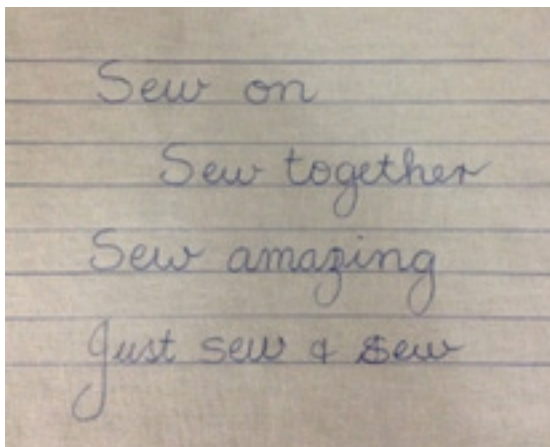 Sew on
Sew together
Sew amazing
Just sew & sew